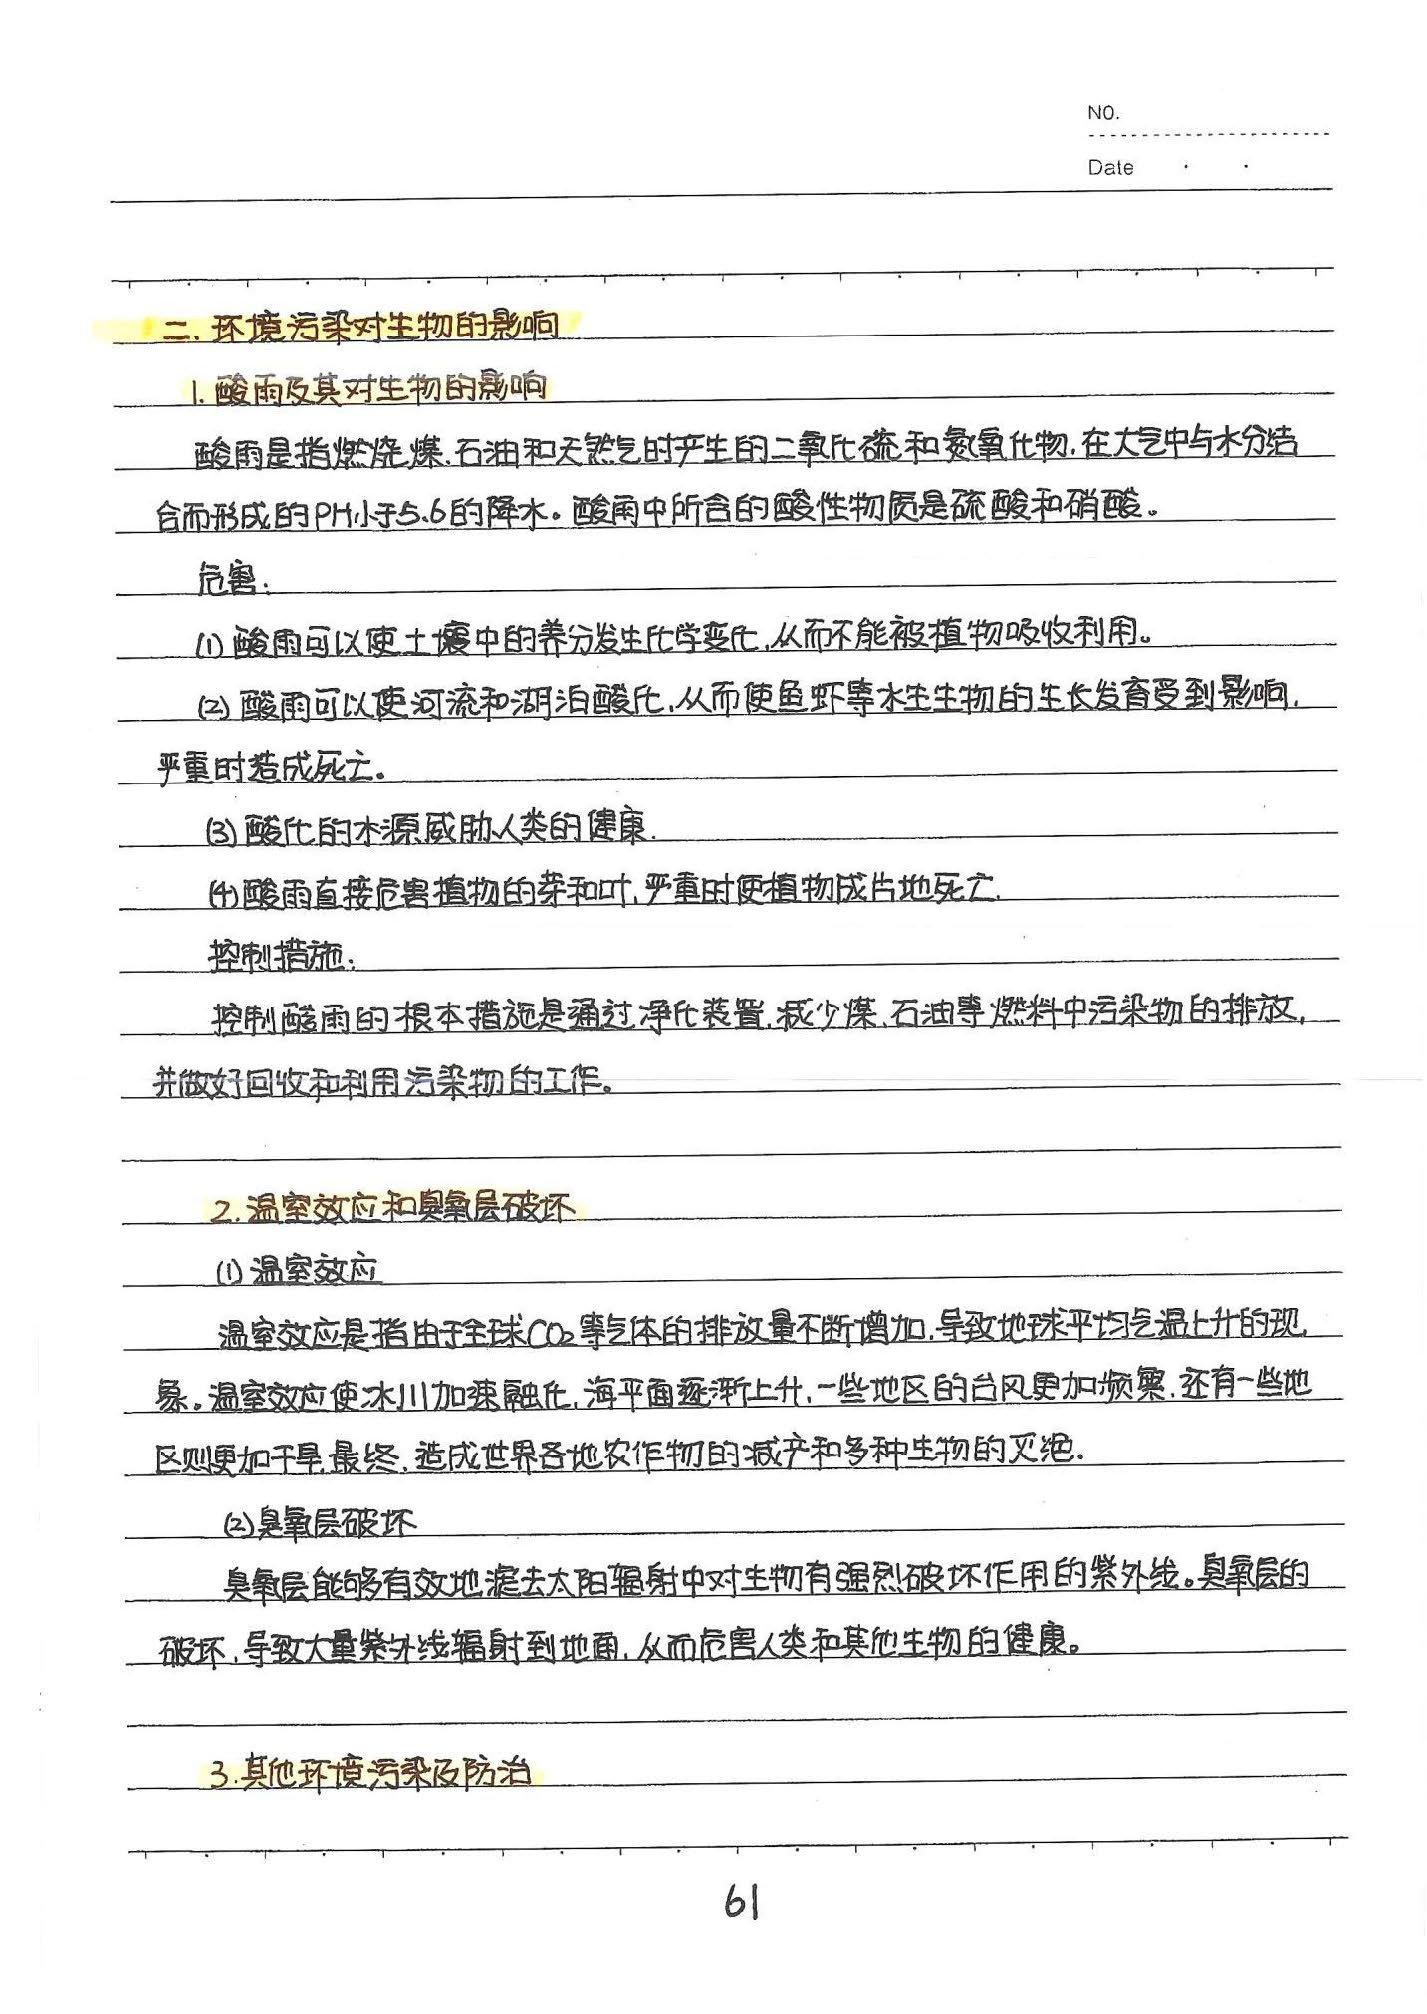 NO.
Date
二. 环境污染对生物的影响
1. 酸雨及其对生物的影响
酸雨是指燃烧煤、石油和天然气时产生的二氧化硫和氮氧化物,在大气中与水分结
合而形成的PH小于5.6的降水。酸雨中所含的酸性物质是硫酸和硝酸。
危害:
(1) 酸雨可以使土壤中的养分发生化学变化,从而不能被植物吸收利用。
(2) 酸雨可以使河流和湖泊酸化,从而使鱼虾等水生生物的生长发育受到影响,
严重时造成死亡。
(3) 酸化的水源威胁人类的健康.
(4) 酸雨直接危害植物的芽和叶,严重时使植物成片地死亡.
控制措施:
控制酸雨的根本措施是通过净化装置,减少煤、石油等燃料中污染物的排放,
并做好回收和利用污染物的工作。
2. 温室效应和臭氧层破坏
(1) 温室效应
温室效应是指由于全球CO₂等气体的排放量不断增加,导致地球平均气温上升的现
象。温室效应使冰川加速融化,海平面逐渐上升,一些地区的台风更加频繁,还有一些地
区则更加干旱,最终,造成世界各地农作物的减产和多种生物的灭绝.
(2) 臭氧层破坏
臭氧层能够有效地滤去太阳辐射中对生物有强烈破坏作用的紫外线。臭氧层的
破坏,导致大量紫外线辐射到地面,从而危害人类和其他生物的健康。
3. 其他环境污染及防治
61